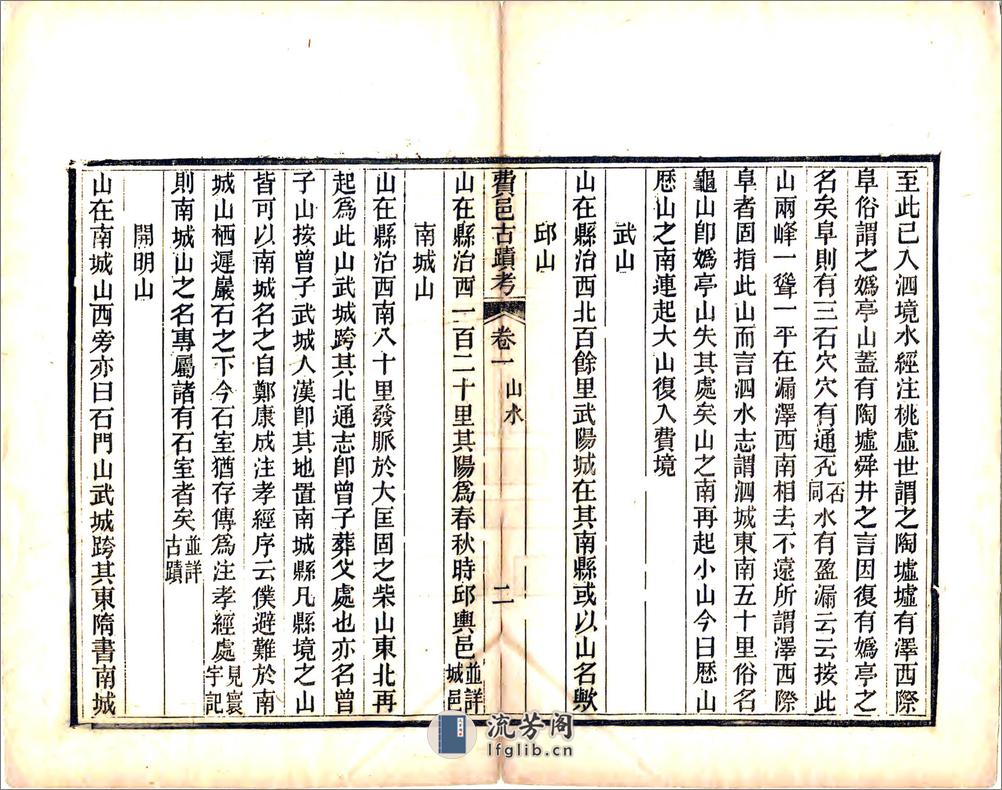 至此已入泗境水經注桃虛世謂之陶墟墟有澤西際
阜俗謂之嬀亭山蓋有陶墟舜井之言因復有嬀亭之
名矣阜則有三石穴穴有通否同水有盈漏云云按此
山兩峰一聳一平在漏澤西南相去不遠所謂澤西際
阜者固指此山而言泗水志謂泗城東南五十里俗名
龜山卽嬀亭山失其處矣山之南再起小山今曰歷山
歷山之南連起大山復入費境
武山
山在縣治西北百餘里武陽城在其南縣或以山名歟
邱山
費邑古蹟考 卷一 山水 二
山在縣治西一百二十里其陽爲春秋時邱輿邑並詳城邑
南城山
山在縣治西南八十里發脈於大匡固之柴山東北再
起爲此山武城跨其北通志卽曾子葬父處也亦名曾
子山按曾子武城人漢卽其地置南城縣凡縣境之山
皆可以南城名之自鄭康成注孝經序云僕避難於南
城山栖遲巖石之下今石室猶存傳爲注孝經處見寰宇記
則南城山之名專屬諸有石室者矣並詳古蹟
開明山
山在南城山西旁亦曰石門山武城跨其東隋書南城
流芳阁
lfglib.cn